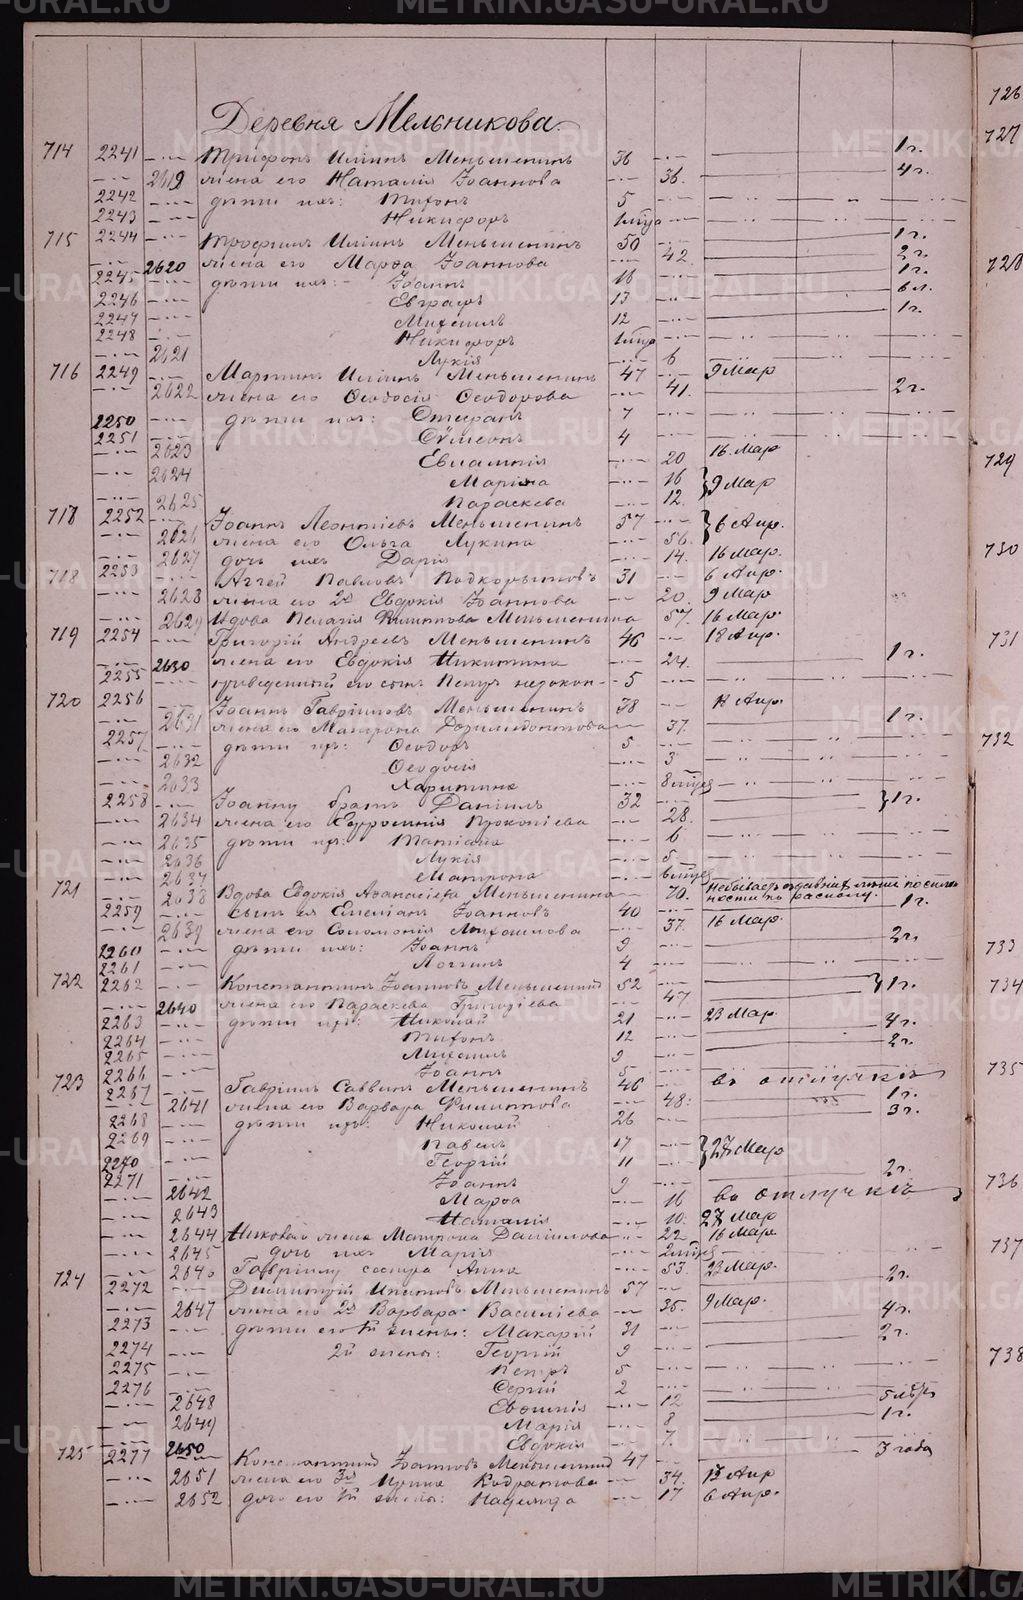 Деревня Мельникова.
714 2241 Трифонъ Илiинъ Меньшенинъ 36 1 г.
2619 жена его Наталiя Iоаннова 36. 4 г.
2242 дѣти ихъ: Тихонъ 5
2243 Никифоръ
715 2244 Трофимъ Илiинъ Меньшенинъ 50 1 г.
2620 жена его Марѳа Iоаннова 42 2 г.
2245 дѣти ихъ: Iоаннъ 16 1 г.
2246 Евграфъ 13 6 л.
2247 Михаилъ 12 1 г.
2248 Никифоръ
2621 Лукiя 6
716 2249 Мартинъ Илiинъ Меньшенинъ 47 9 Мар
2622 жена его Ѳеодосiя Ѳеодорова 41. 2 г.
2250 дѣти ихъ: Стефанъ 7
2251 Сѵмеонъ 4
2623 Евлампiя 20 16. Мар
2624 Марiна 16 9 Мар
2625 Параскева 12
718 2252 Iоаннъ Леонтiевъ Меньшенинъ 57 6 Апр.
2626 жена его Ольга Лукина 56.
2627 дочь ихъ Дарiя 14. 16 Мар.
718 2253 Павловъ Подкорытовъ 31 6 Апр.
2628 жена его 2я Евдокiя Iоаннова 20. 9 Мар
2629 Вдова Пелагiя Филиппова Меньшенина 57. 16 Мар
719 2254 Григорiй Андреевъ Меньшенинъ 46 18 Апр.
2630 жена его Евдокiя Никитина 24. 1 г.
2255 приведенный его сынъ Петръ 5
720 2256 Iоаннъ Гаврiиловъ Меньшенинъ 38 Апр.
2631 жена его Матрона 37. 1 г.
2257 дѣти ихъ: Ѳеодоръ 5
2632 Ѳеодосiя 3
2633 Харитина
2258 Iоанну братъ Данiилъ 32 1 г.
2634 жена его Евфросинiя Прокопiева 28.
2635 дѣти ихъ: Татiана 6
2636 Лукiя 5
2637 Матрона
721 2638 Вдова Евдокiя Аѳанасiева Меньшенина 70.
2259 сынъ ея Iоанновъ 40 1 г.
2639 жена его Соломонiя Михаилова 37. 16 Мар.
2260 дѣти ихъ: Iоаннъ 9 2 г.
2261 Логгинъ 4
722 2262 Константинъ Iоанновъ Меньшенинъ 52 1 г.
2640 жена его Параскева Григорiева 47
2263 дѣти ихъ: Николай 21 23 Мар
2264 Тихонъ 12 4 г.
2265 Михаилъ 9 2 г.
2266 Iоаннъ 5
723 2267 Гаврiилъ Саввинъ Меньшенинъ 46 въ отлучкѣ
2641 жена его Варвара Филиппова 48. 1 г.
2268 дѣти ихъ: Николай 26 3 г.
2269 Павелъ 17 27 Мар
2270 Георгiй 11
2271 Iоаннъ 9 2 г.
2642 Марѳа 16 въ отлучкѣ
2643 Наталiя 10. 27 Мар
2644 жена Матрона Данiилова 22 16 Мар
2645 дочь ихъ Марiя
2646 Гаврiилу сестра Анна 53. 23 Мар.
724 2272 Димитрiй Меньшенинъ 57 2 г.
2647 жена его 2я Варвара Василiева 35. 9 Мар.
2273 дѣти его 1й жены: Макарiй 31 4 г.
2274 2й жены: Георгiй 9 2 г.
2275 Петръ 5
2276 Сергiй 2
2648 Евѳимiя 12
2649 Марiя 8 1 г.
2650 Евдокiя 7.
725 2277 Константинъ Iоанновъ Меньшенинъ 47 3 года
2651 жена его 3я Ирина Кодратова 34. Апр
2652 дочь его 1й жены: Надежда 17 6 Апр.
726
727
728
729
730
731
732
733
734
735
736
737
738
METRIKI.GASO-URAL.RU